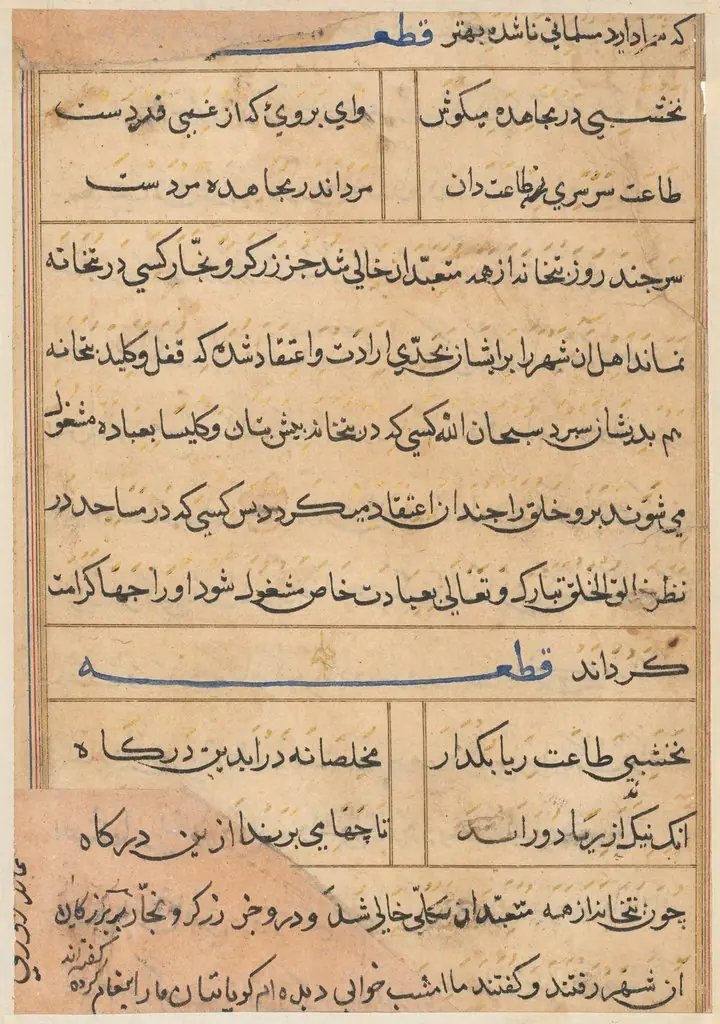 که سزا دارد مسلمانی ناشده بهتر قطعه
نخشبی در مجاهده میکوش وای بروی که از غمی فردست
طاعت سرسری نه طاعت دان مرد اندر مجاهده مردست
سر چند روز بتخانه از همه متعبدان خالی شد جز زرکر و نجّار کسی در بتخانه
نماند اهل ان شهر را بر ایشان بحدّی ارادت و اعتقاد شده که قفل و کلید بتخانه
هم بدیشان سپرد سبحان الله کسی که در بتخانه پیش بتان و کلیسا بعباده مشغول
می شوند برو خلق را چندان اعتقاد میکردد پس کسی که در مساجد در
نظر خالق الخلق تبارک و تعالی بعبادت خاص مشغول شود او را چها کرامت
کرداند قطعه
نخشبی طاعت ریا بکدار مخلصانه درا بدین درکاه
انک نیک از ریا دور اند تا چها می برند از ین درکاه
چون بتخانه از همه متعبدان بکلّی خالی شد و درو جز زرکر و نجّار بر بزرکان
ان شهر رفتند و کفتند ما امشب خوابی دیده ام کویا بتان ما را